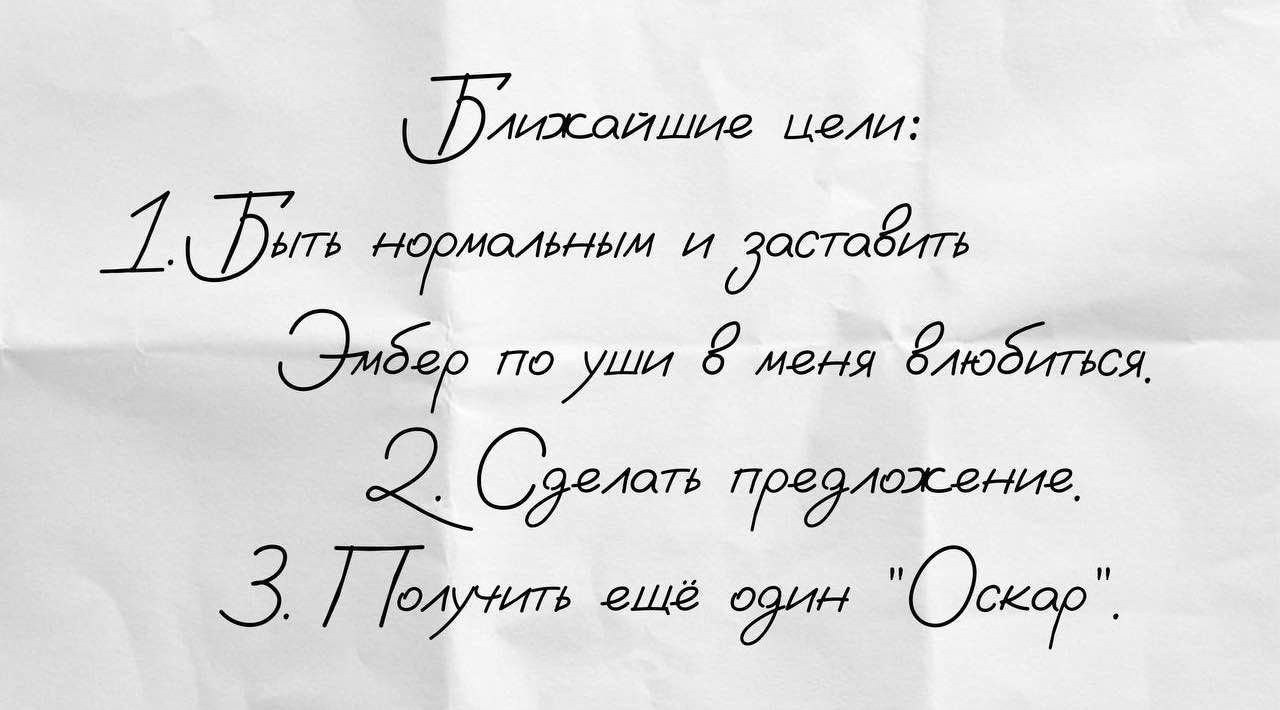 Ближайшие цели:
1. Быть нормальным и заставить
Эмбер по уши в меня влюбиться.
2. Сделать предложение.
3. Получить ещё один "Оскар".